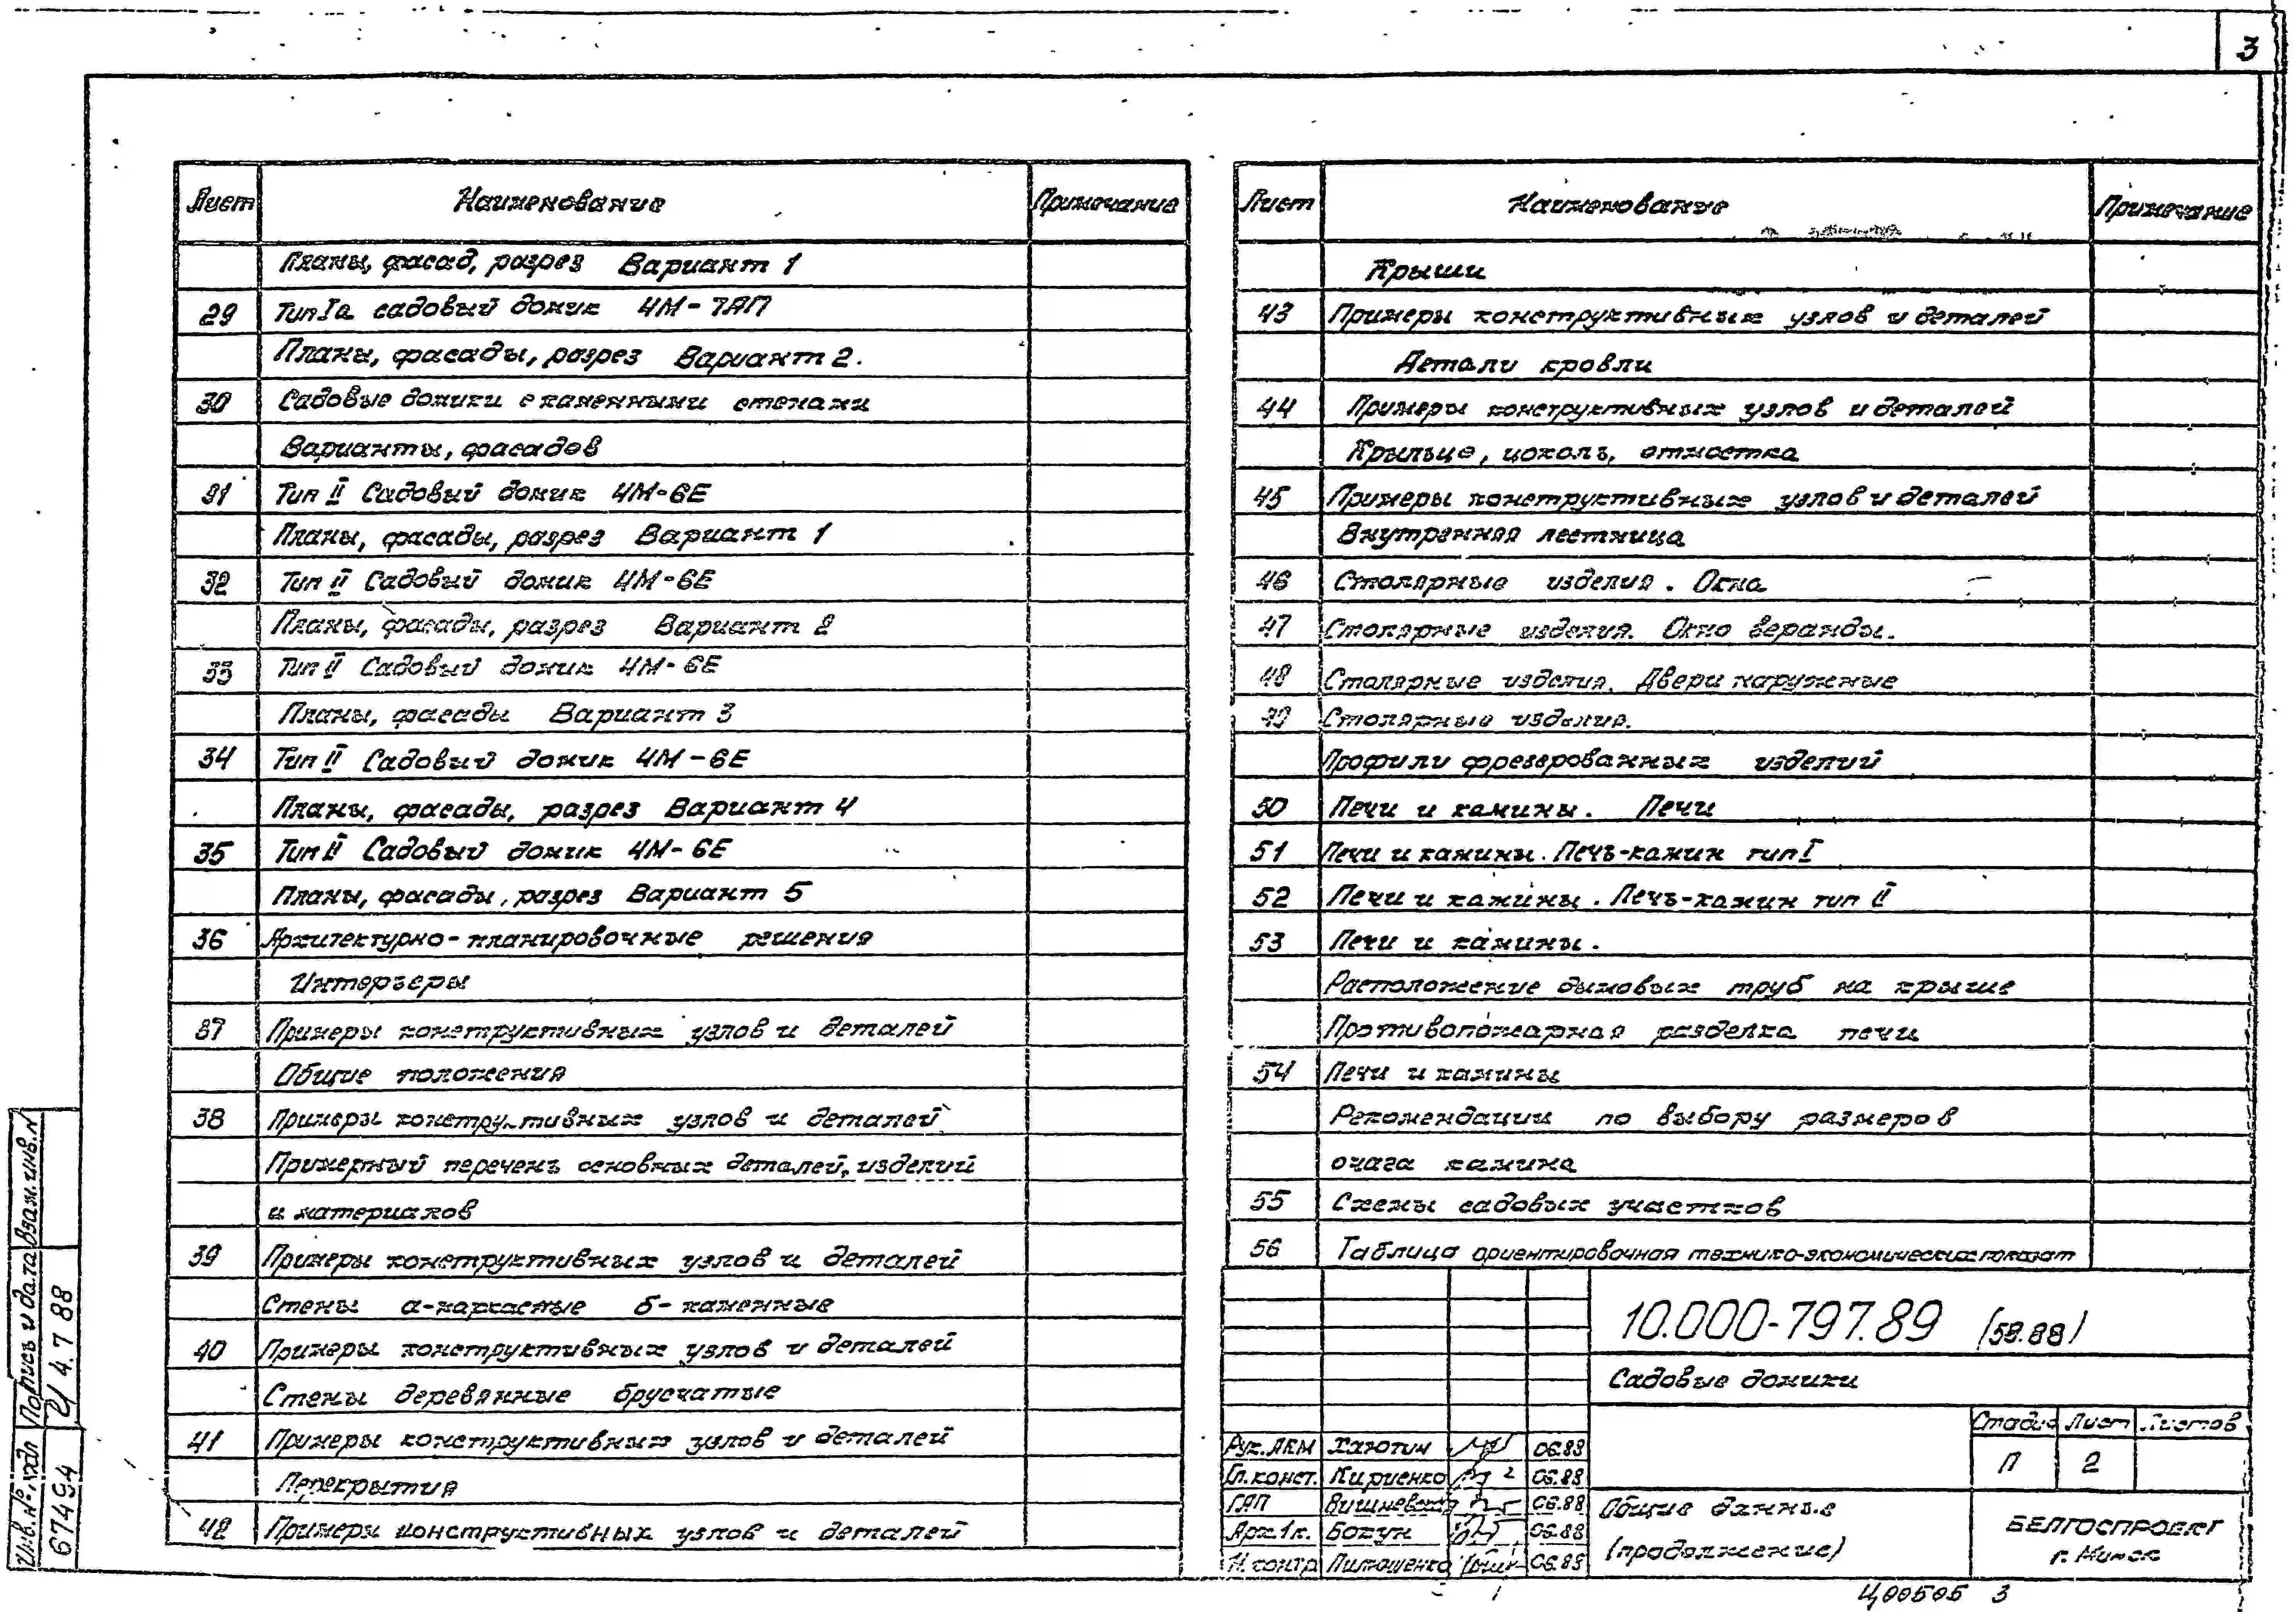 3
Лист Наименование Примечание
Планы, фасад, разрез Вариант 1
29 Тип Iа садовый домик 4М-7АП
Планы, фасады, разрез Вариант 2.
30 Садовые домики с каменными стенами
Варианты, фасадов
31 Тип II Садовый домик 4М-6Е
Планы, фасады, разрез Вариант 1
32 Тип II Садовый домик 4М-6Е
Планы, фасады, разрез Вариант 2
33 Тип II Садовый домик 4М-6Е
Планы, фасады Вариант 3
34 Тип II Садовый домик 4М-6Е
Планы, фасады, разрез Вариант 4
35 Тип II Садовый домик 4М-6Е
Планы, фасады, разрез Вариант 5
36 Архитектурно-планировочные решения
Интерьеры
37 Примеры конструктивных узлов и деталей
Общие положения
38 Примеры конструктивных узлов и деталей
Примерный перечень основных деталей, изделий
и материалов
39 Примеры конструктивных узлов и деталей
Стены а-каркасные б-каменные
40 Примеры конструктивных узлов и деталей
Стены деревянные брусчатые
41 Примеры конструктивных узлов и деталей
Перекрытия
42 Примеры конструктивных узлов и деталей
Лист Наименование Примечание
Крыши
43 Примеры конструктивных узлов и деталей
Детали кровли
44 Примеры конструктивных узлов и деталей
Крыльцо, цоколь, отмостка
45 Примеры конструктивных узлов и деталей
Внутренняя лестница
46 Столярные изделия. Окна
47 Столярные изделия. Окно веранды.
48 Столярные изделия. Двери наружные
49 Столярные изделия.
Профили фрезерованных изделий
50 Печи и камины. Печи
51 Печи и камины. Печь-камин тип I
52 Печи и камины. Печь-камин тип II
53 Печи и камины.
Расположение дымовых труб на крыше
Противопожарная разделка печи
54 Печи и камины
Рекомендации по выбору размеров
очага камина
55 Схемы садовых участков
56 Таблица ориентировочная технико-экономических показат
10.000-797.89 (58.88)
Садовые домики
Стадия Лист Листов
П 2
Рук. АКМ Хаютин 06.88
Гл. конст. Кириенко 06.88
ГАП Вишневская 06.88
Арх. 1к. Бокун 06.88
Н. контр Пилошенко 06.88
Общие данные
(продолжение)
БЕЛГОСПРОЕКТ
г. Минск
Ц00505 3
Инв. № подл Подпись и дата Взам. инв. №
67494 4.7 88